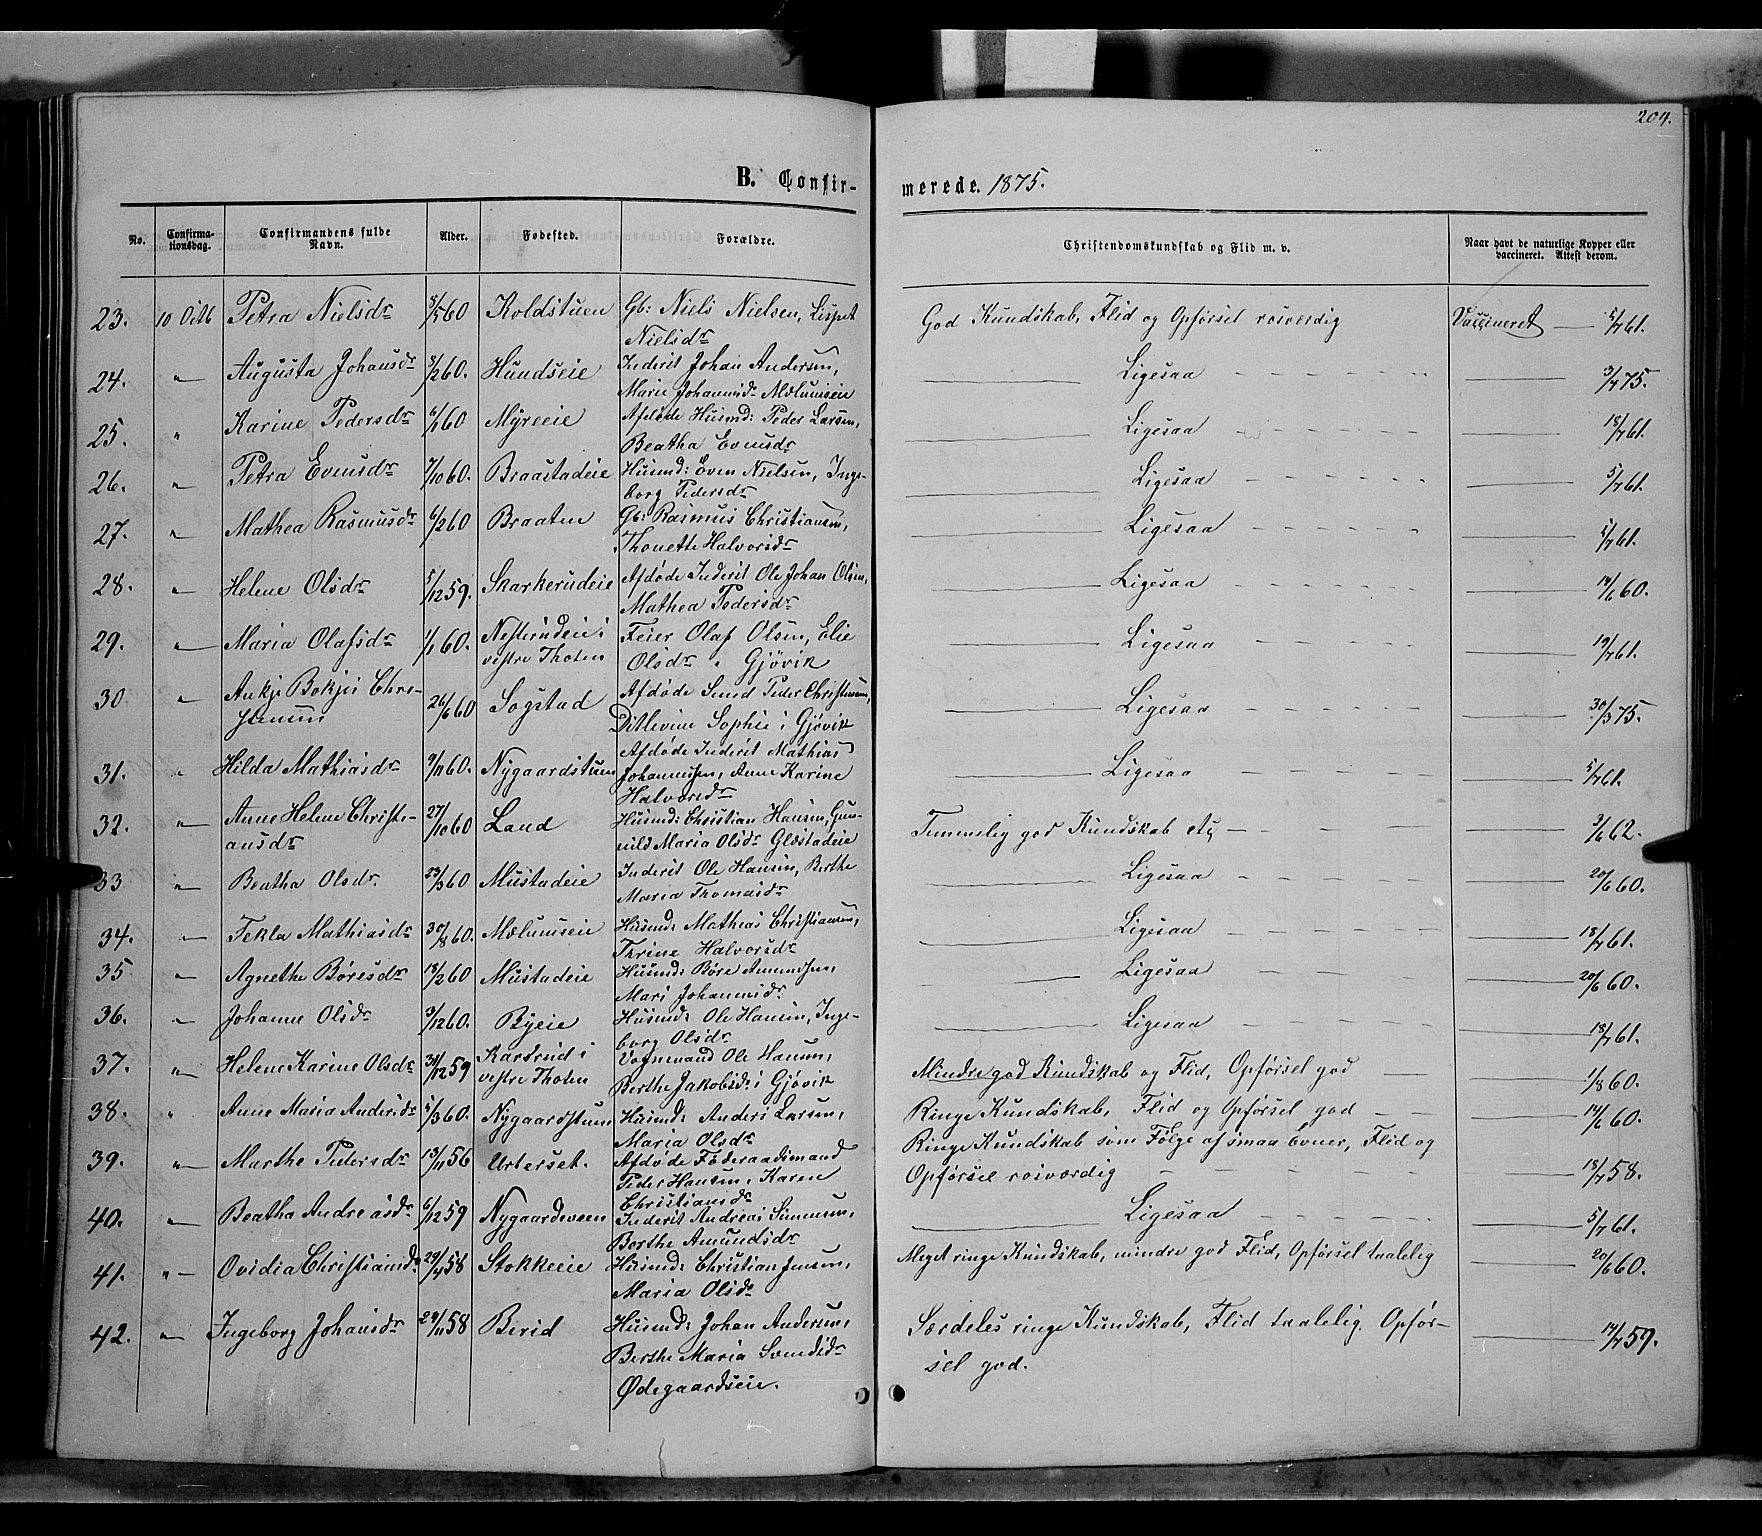 204.
B. Confir-
merede. 1875.
No.
Confirma-
tionsdag.
Confirmandens fulde
Navn.
Alder.
Fødested.
Forældre.
Christendomskundskab og Flid m. v.
Naar havt de naturlige Kopper eller
vaccineret. Attest derom.
23. 10 Octb Petra Nielsdr 3/5 60 Koldstuen Gb: Niels Nielsen, Lispet
Nielsdr
God Kundskab, Flid og Opførsel rosværdig Vaccineret — 5/7 61.
24. " Augusta Johansdr 8/2 60. Hundseie Inderst Johan Andersen,
Marie Johannesdr Mælumseie
Ligesaa 3/7 75.
25. " Karine Pedersdr 6/1 60 Myreeie Afdøde Husmd: Peder Larsen,
Beatha Evensdr
Ligesaa 18/7 61.
26. " Petra Evensdr 7/10 60. Braastadeie Husmd: Even Nielsen, Inge-
borg Pedersdr
Ligesaa 5/7 61.
27. " Mathea Rasmusdr 6/2 60 Braaten Gb: Rasmus Christiansen,
Thonette Halvorsdr
Ligesaa 5/7 61.
28. " Helene Olsdr 5/12 59. Skarkerudeie Afdøde Inderst Ole Johan Olsen,
Mathea Pedersdr
Ligesaa 14/6 60.
29. " Maria Olafsdr 1/1 60. Nesterudeie i
vestre Thoten
Feier Olaf Olsen, Elie
Olsdr " Gjövik
Ligesaa 19/7 61.
30. " Ankje Bokjes Chri-
stensen
26/6 60 Sogstad Afdøde Smed Peder Christensen,
Ditlevine Sophie i Gjövik
Ligesaa 30/3 75.
31. " Hilda Mathiasdr 9/11 60. Nygaardstuen Afdøde Inderst Mathias
Johannesen, Anne Karine
Halvorsdr
Ligesaa 5/7 61.
32. " Anne Helene Christi-
ansdr
27/10 60 Land Husmd: Christian Hansen, Gun-
nild Maria Olsdr Glæstadeie
Temmelig god Kundskab 3/6 62.
33 " Beatha Olsdr. 23/3 60 Mustadeie Inderst Ole Hansen, Berthe
Maria Thomasdr
Ligesaa 20/6 60.
34. " Tekla Mathiasdr 30/8 60. Mælumseie Husmd: Mathias Christiansen,
Thrine Halvorsdr
Ligesaa 18/7 61.
35 " Agnethe Børesdr 18/2 60 Mustadeie Husmd: Børe Amundsen,
Mari Johannesdr
Ligesaa 20/6 60.
36. " Johanne Olsdr 3/12 60. Byeie Husmd: Ole Hansen, Inge-
borg Olsdr
Ligesaa 18/7 61.
37. " Helene Karine Olsdr 31/12 59 Karsrud i
vestre Thoten
Vognmand Ole Hansen,
Berthe Jakobsdr i Gjövik
Mindre god Kundskab og Flid, Opførsel god 1/8 60.
38. " Anne Maria Andersdr 5/3 60. Nygaardstuen Husmd: Anders Larsen,
Maria Olsdr
Ringe Kundskab, Flid og Opførsel god 14/6 60.
39. " Marthe Pedersdr 13/11 56 Urterset. Afdøde Föderaadsmand
Peder Hansen, Karen
Christiansdr
Ringe Kundskab som Følge af smaa Evner, Flid og
Opførsel rosværdig 18/7 58.
40. " Beatha Andreasdr 6/12 59 Nygaardsveen Inderst Andreas Simensen,
Berthe Amundsdr
Ligesaa 5/7 61.
41. " Ovidia Christiansdr 29/4 58 Stokkeeie Husmd: Christian Jensen,
Maria Olsdr
Meget ringe Kundskab, mindre god Flid, Opførsel taalelig 20/6 60.
42. " Ingeborg Johansdr 29/11 58 Birid Husmd: Johan Andersen,
Berthe Maria Svendsdr
Ødegaardseie.
Særdeles ringe Kundskab, Flid taalelig. Opfør-
sel god. 14/7 59.